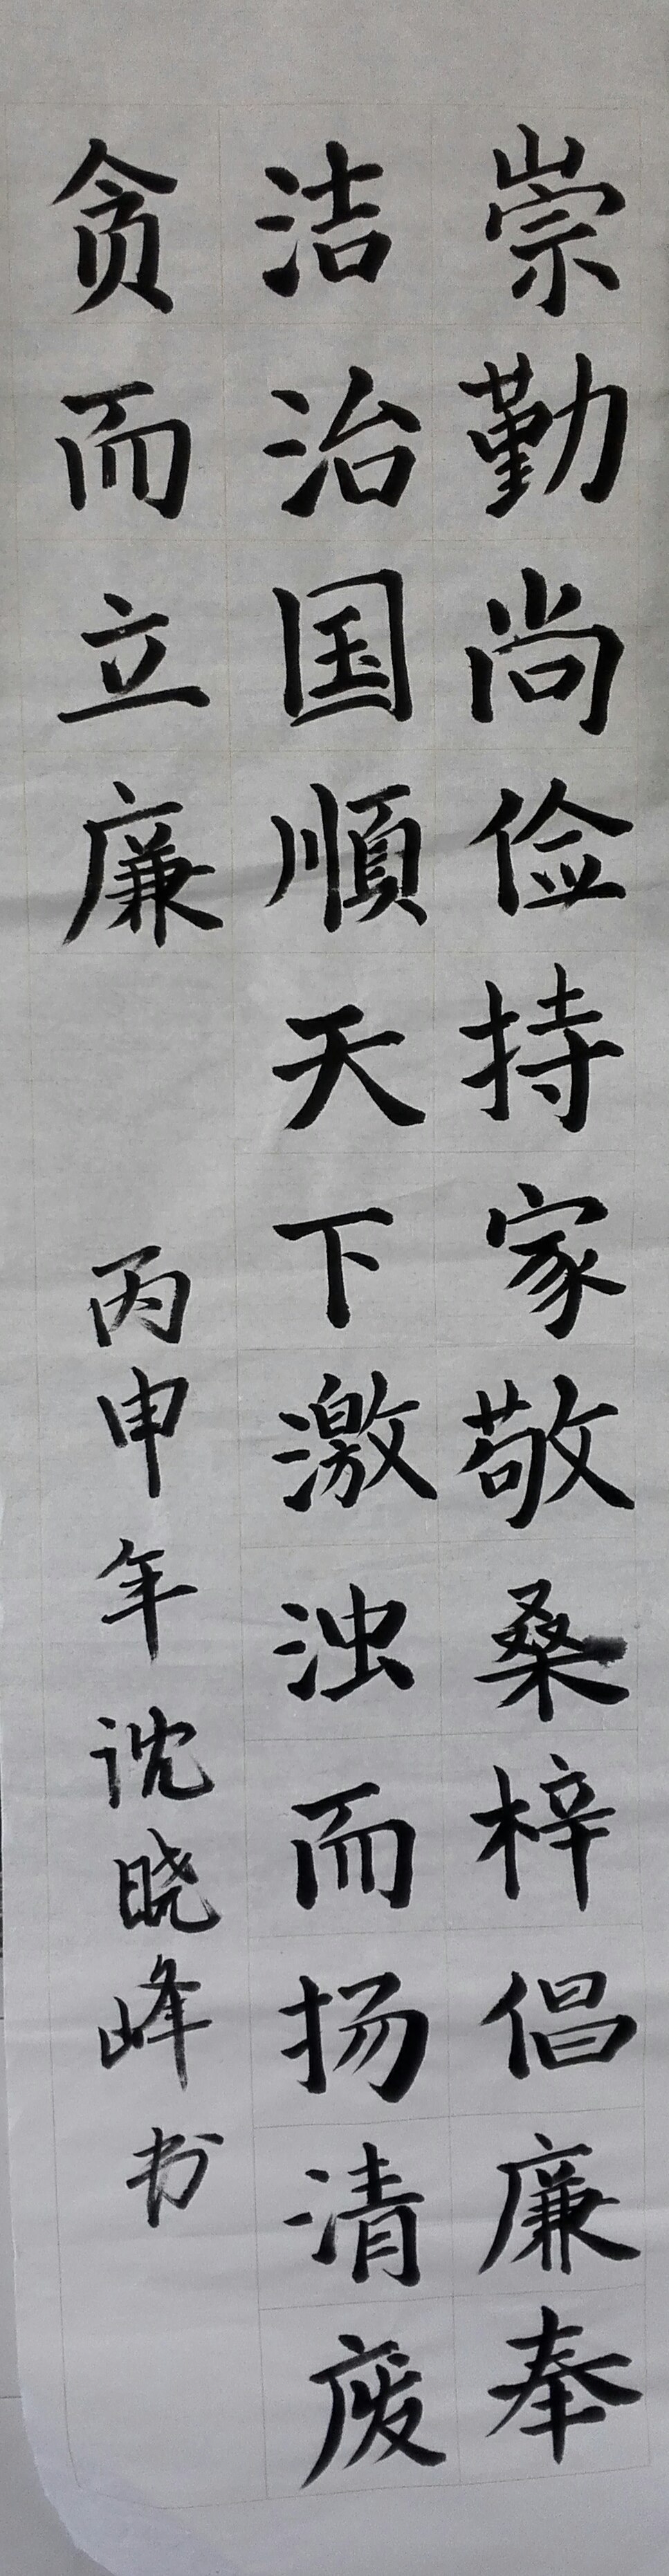 崇勤尚俭持家敬桑梓倡廉奉
洁治国順天下激浊而扬清废
贪而立廉
丙申年沈晓峰书